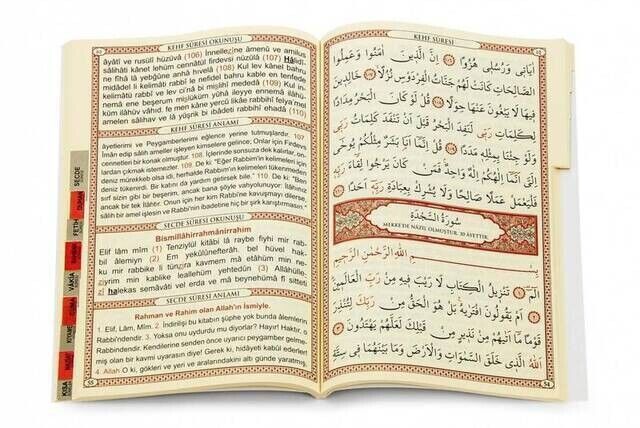 KEHF SÛRESİ
اٰيَاتِى وَرُسُلِى هُزُوًا ﴿١٠٦﴾ اِنَّ الَّذِينَ اٰمَنُوا وَعَمِلُوا
الصَّالِحَاتِ كَانَتْ لَهُمْ جَنَّاتُ الْفِرْدَوْسِ نُزُلًا ﴿١٠٧﴾ خَالِدِينَ
فِيهَا لَا يَبْغُونَ عَنْهَا حِوَلًا ﴿١٠٨﴾ قُلْ لَوْ كَانَ الْبَحْرُ مِدَادًا
لِكَلِمَاتِ رَبِّى لَنَفِدَ الْبَحْرُ قَبْلَ اَنْ تَنْفَدَ كَلِمَاتُ رَبِّى
وَلَوْ جِئْنَا بِمِثْلِهِ مَدَدًا ﴿١٠٩﴾ قُلْ اِنَّمَا اَنَا بَشَرٌ مِثْلُكُمْ يُوحٰى
اِلَىَّ اَنَّمَا اِلٰهُكُمْ اِلٰهٌ وَاحِدٌ فَمَنْ كَانَ يَرْجُوا لِقَاءَ رَبِّهِ
فَلْيَعْمَلْ عَمَلًا صَالِحًا وَلَا يُشْرِكْ بِعِبَادَةِ رَبِّهِ اَحَدًا ﴿١١٠﴾
سُورَةُ السَّجْدَةِ
MEKKE'DE NÂZİL OLMUŞTUR. 30 ÂYETTİR.
بِسْمِ اللّٰهِ الرَّحْمٰنِ الرَّحِيمِ
الٓمٓ ﴿١﴾ تَنْزِيلُ الْكِتَابِ لَا رَيْبَ فِيهِ مِنْ رَبِّ الْعَالَمِينَ
﴿٢﴾ اَمْ يَقُولُونَ افْتَرٰيهُ بَلْ هُوَ الْحَقُّ مِنْ رَبِّكَ لِتُنْذِرَ
قَوْمًا مَا اَتٰيهُمْ مِنْ نَذِيرٍ مِنْ قَبْلِكَ لَعَلَّهُمْ يَهْتَدُونَ ﴿٣﴾
اَللّٰهُ الَّذِى خَلَقَ السَّمٰوَاتِ وَالْاَرْضَ وَمَا بَيْنَهُمَا فِى سِتَّةِ
54
KEHF SÛRESİ OKUNUŞU
âyâtî ve rusulî hüzüvâ (106) İnnellezîne âmenû ve amilus
sâlihâti kânet lehüm cennâtül firdevsi nüzülâ (107) Hâlidî-
ne fîhâ lâ yebğûne anhâ hıvelâ (108) Kul lev kânel bahru
midâdel li kelimâti rabbî le nefidel bahru kable en tenfede
kelimâtü rabbî ve lev ci'nâ bi mislihî mededâ (109) Kul in-
nemâ ene beşerum mislüküm yûhâ ileyye ennemâ ilâhü-
küm ilâhüv vâhid, fe men kâne yercû likâe rabbihî felya'mel
amelen sâlihav ve lâ yüşrik bi ıbâdeti rabbihî ehadâ (110)
KEHF SÛRESİ ANLAMI
âyetlerimi ve Peygamberlerimi eğlence yerine tutmuşlardır. 107.
İman edip salih ameller işleyen kimselere gelince; Onlar için Firdevs
cennetleri bir konak olmuştur. 108. İçlerinde sonsuza dek kalırlar, on-
lardan çıkmak istemezler. 109. De ki: "Eğer Rabbim'in kelimeleri için
deniz mürekkeb olsa idi, herhalde Rabbim'in kelimeleri tükenmeden
deniz tükenirdi. Bir katını da yardım getirsek bile." 110. De ki: "Ben
sırf sizin gibi bir beşerim, ancak bana şöyle vahyolunuyor: İlâhınız
ancak bir tek İlâhtır. Onun için her kim Rabbi'ne kavuşmayı dilerse,
salih bir amel işlesin ve Rabbi'nin ibadetine hiç bir şirk karıştırmasın."
SECDE SÛRESİ OKUNUŞU
Bismillâhirrahmânirrahîm
Elif lâm mîm (1) Tenzîlül kitâbi lâ raybe fîhi mir rab-
bil âlemîyn (2) Em yekûlûnefterâh. bel hüvel hak-
ku mir rabbike li tünzira kavmem mâ etâhüm min ne-
ziyrim min kablike leallehüm yehtedûn (3) Allâhülle-
zî halekas semâvâti vel erda ve mâ beynehümâ fî sitteti
SECDE SÛRESİ ANLAMI
Rahman ve Rahim olan Allah'ın İsmiyle.
1. Elif, Lâm, Mîm. 2. İndirilişi bu kitabın şüphe yok bunda âlemlerin
Rabbi'ndendir. 3. Yoksa onu uydurdu mu diyorlar? Hayır! Haktır, o
Rabbi'ndendir. Kendilerine senden önce uyarıcı peygamber gelme-
miş olan bir kavmi uyarasın diye! Gerek ki, hidâyeti kabûl ederler!
4. Allah O ki, gökleri ve yeri ve aralarındakini altı günde yaratmış,
55
SECDE
DUHAN
FETH
VÂKIA
CUMA
KIYAMET
KISA